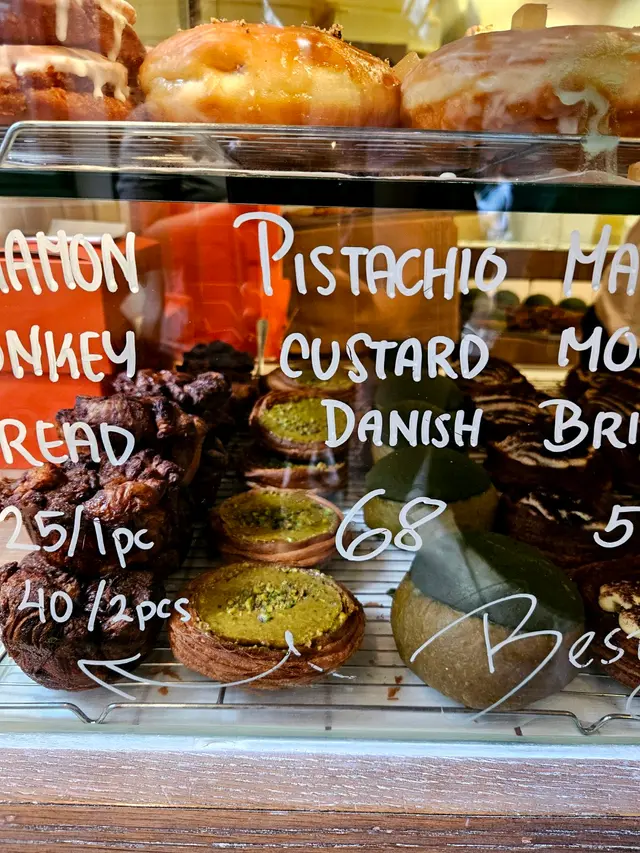 NAMON
ONKEY
READ
25/1pc
40/2pcs
PISTACHIO
CUSTARD
DANISH
68
MA
MO
BRI
5
Best